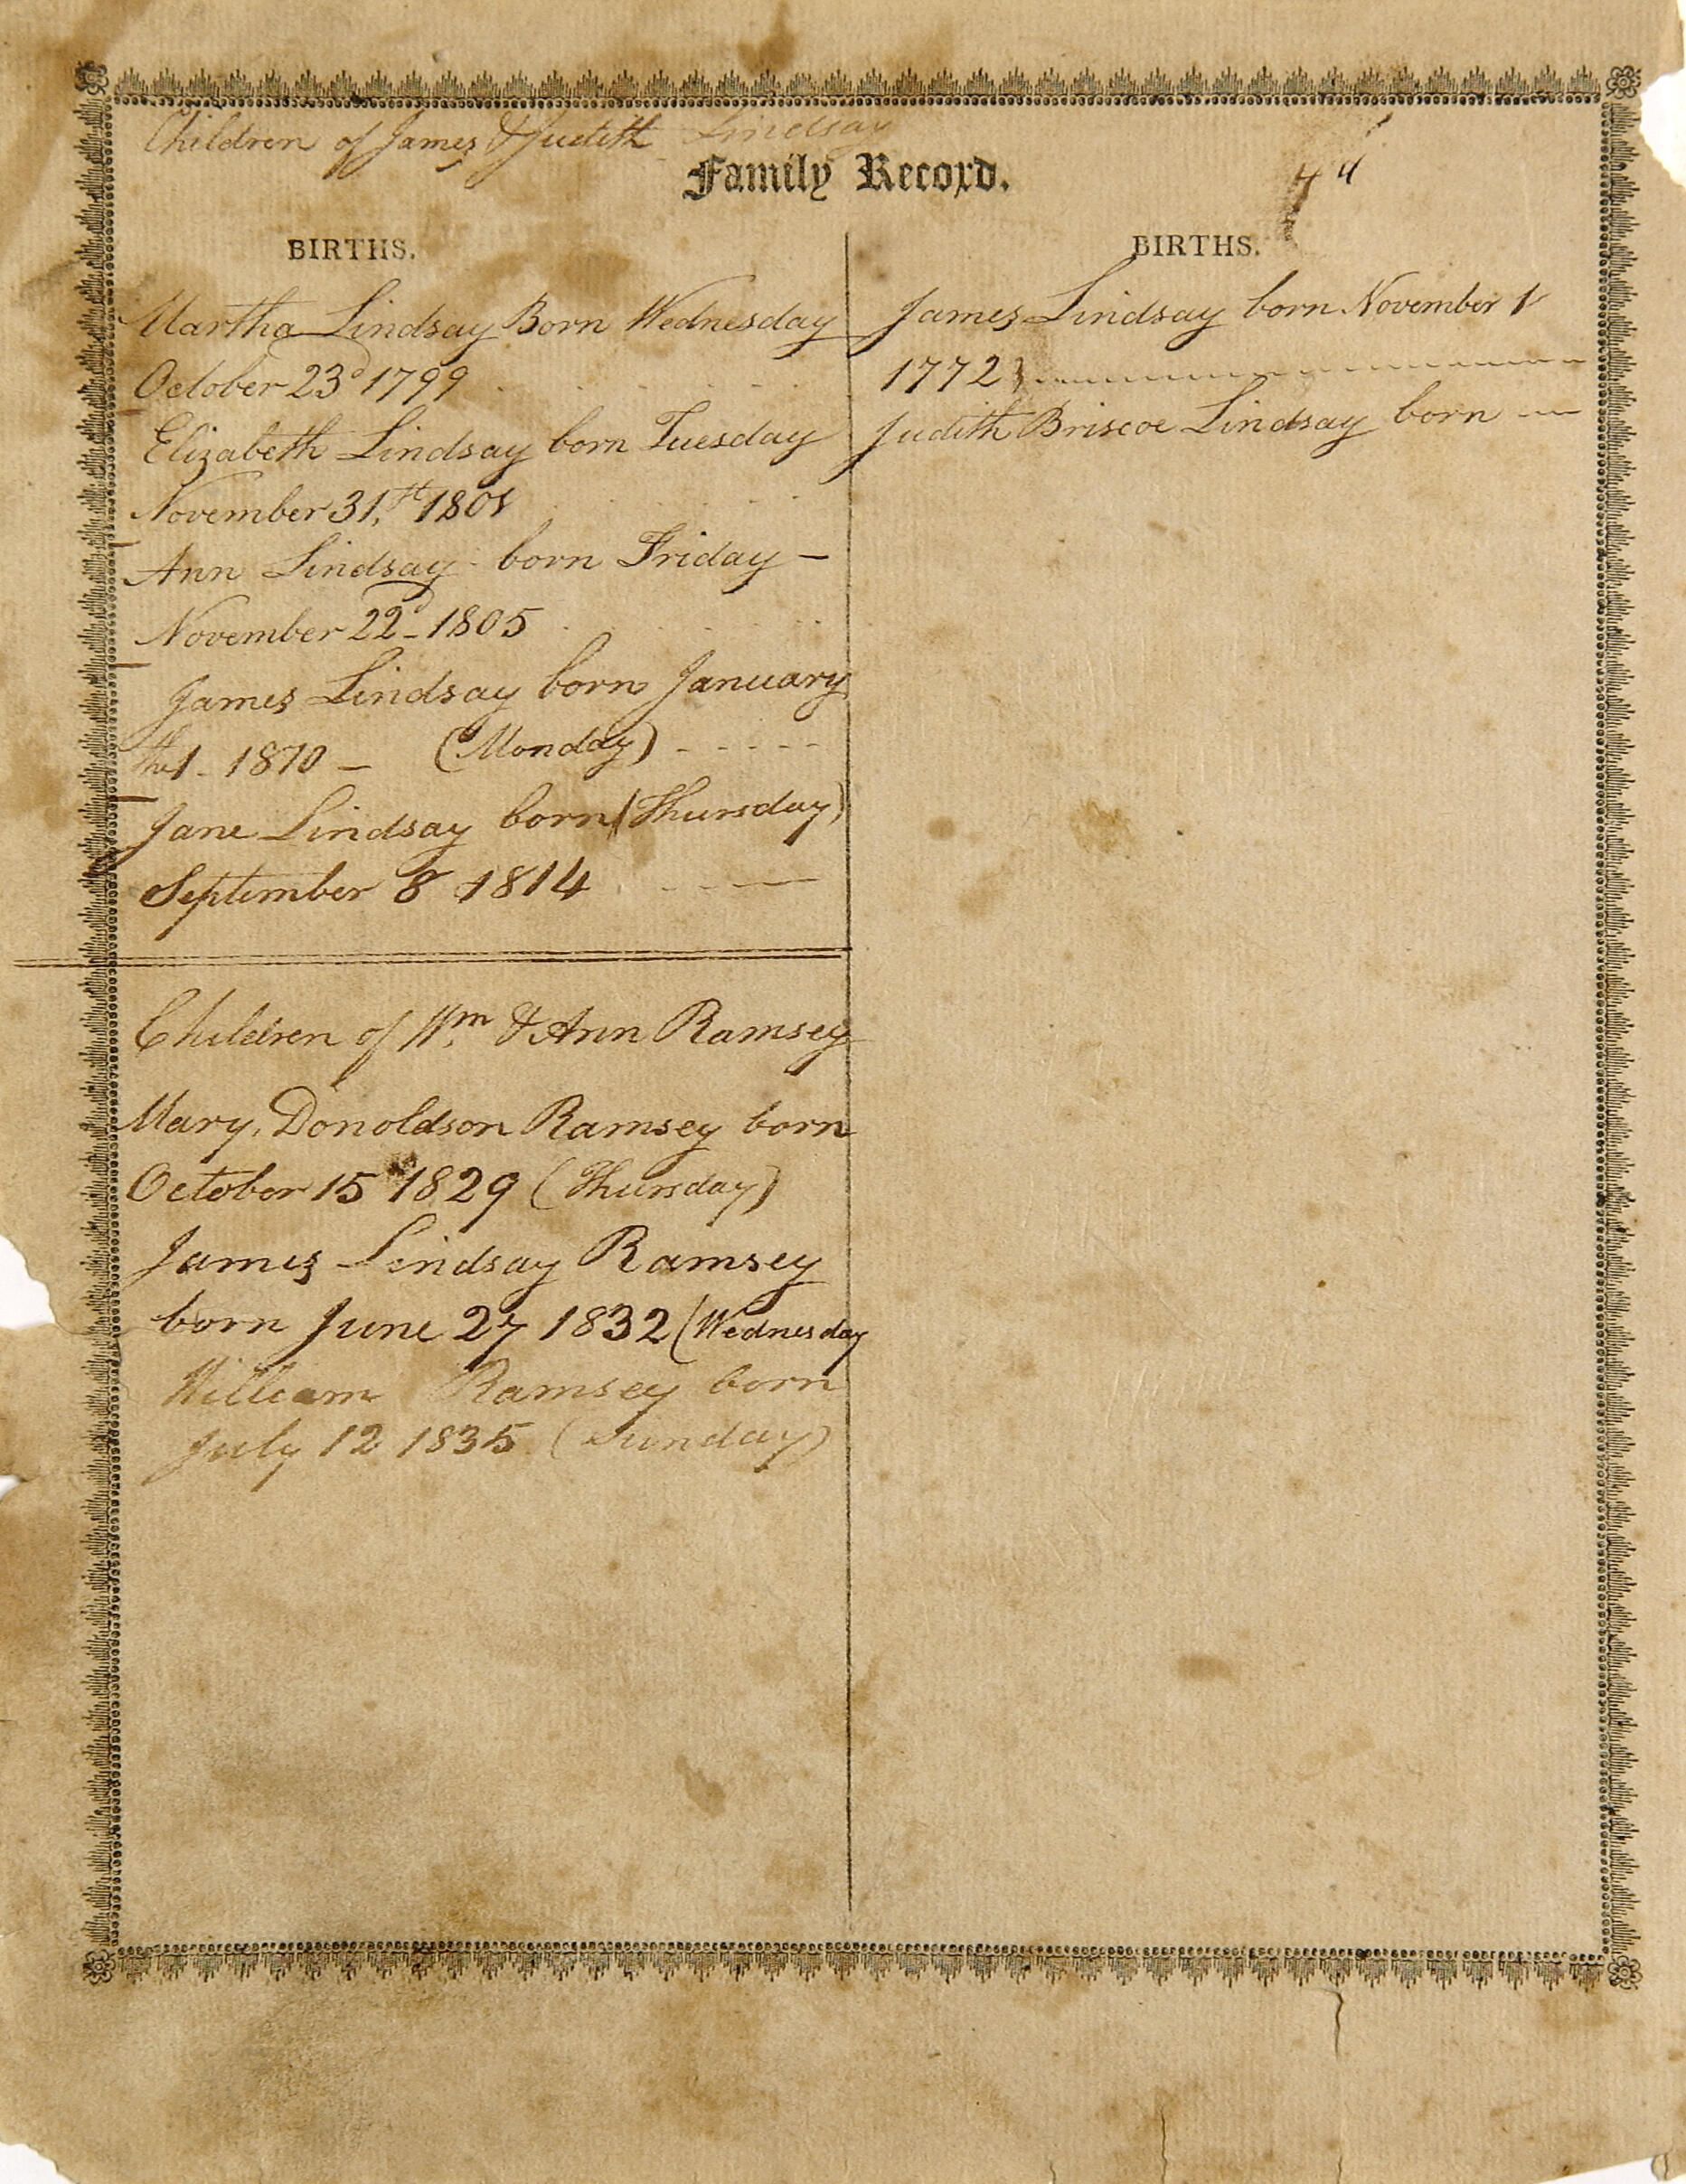 Children of James & Judith Lindsay
Family Record.
BIRTHS.
Martha Lindsay Born Wednesday
October 23d 1799
Elizabeth Lindsay born Tuesday
November 31,st 1801
Ann Lindsay born Friday –
November 22d – 1805
James Lindsay born January
the 1 – 1810 – (Monday) - - - - -
Jane Lindsay born (Thursday)
September 8 1814 - - —
Children of Wm. & Ann Ramsey
Mary, Donoldson Ramsey born
October 15 1829 (Thursday)
James Lindsay Ramsey
born June 27 1832 (Wednesday
William Ramsey born
July 12 1835 (Sunday)
BIRTHS.
James Lindsay born November 1
1772}
Judith Briscoe Lindsay born —